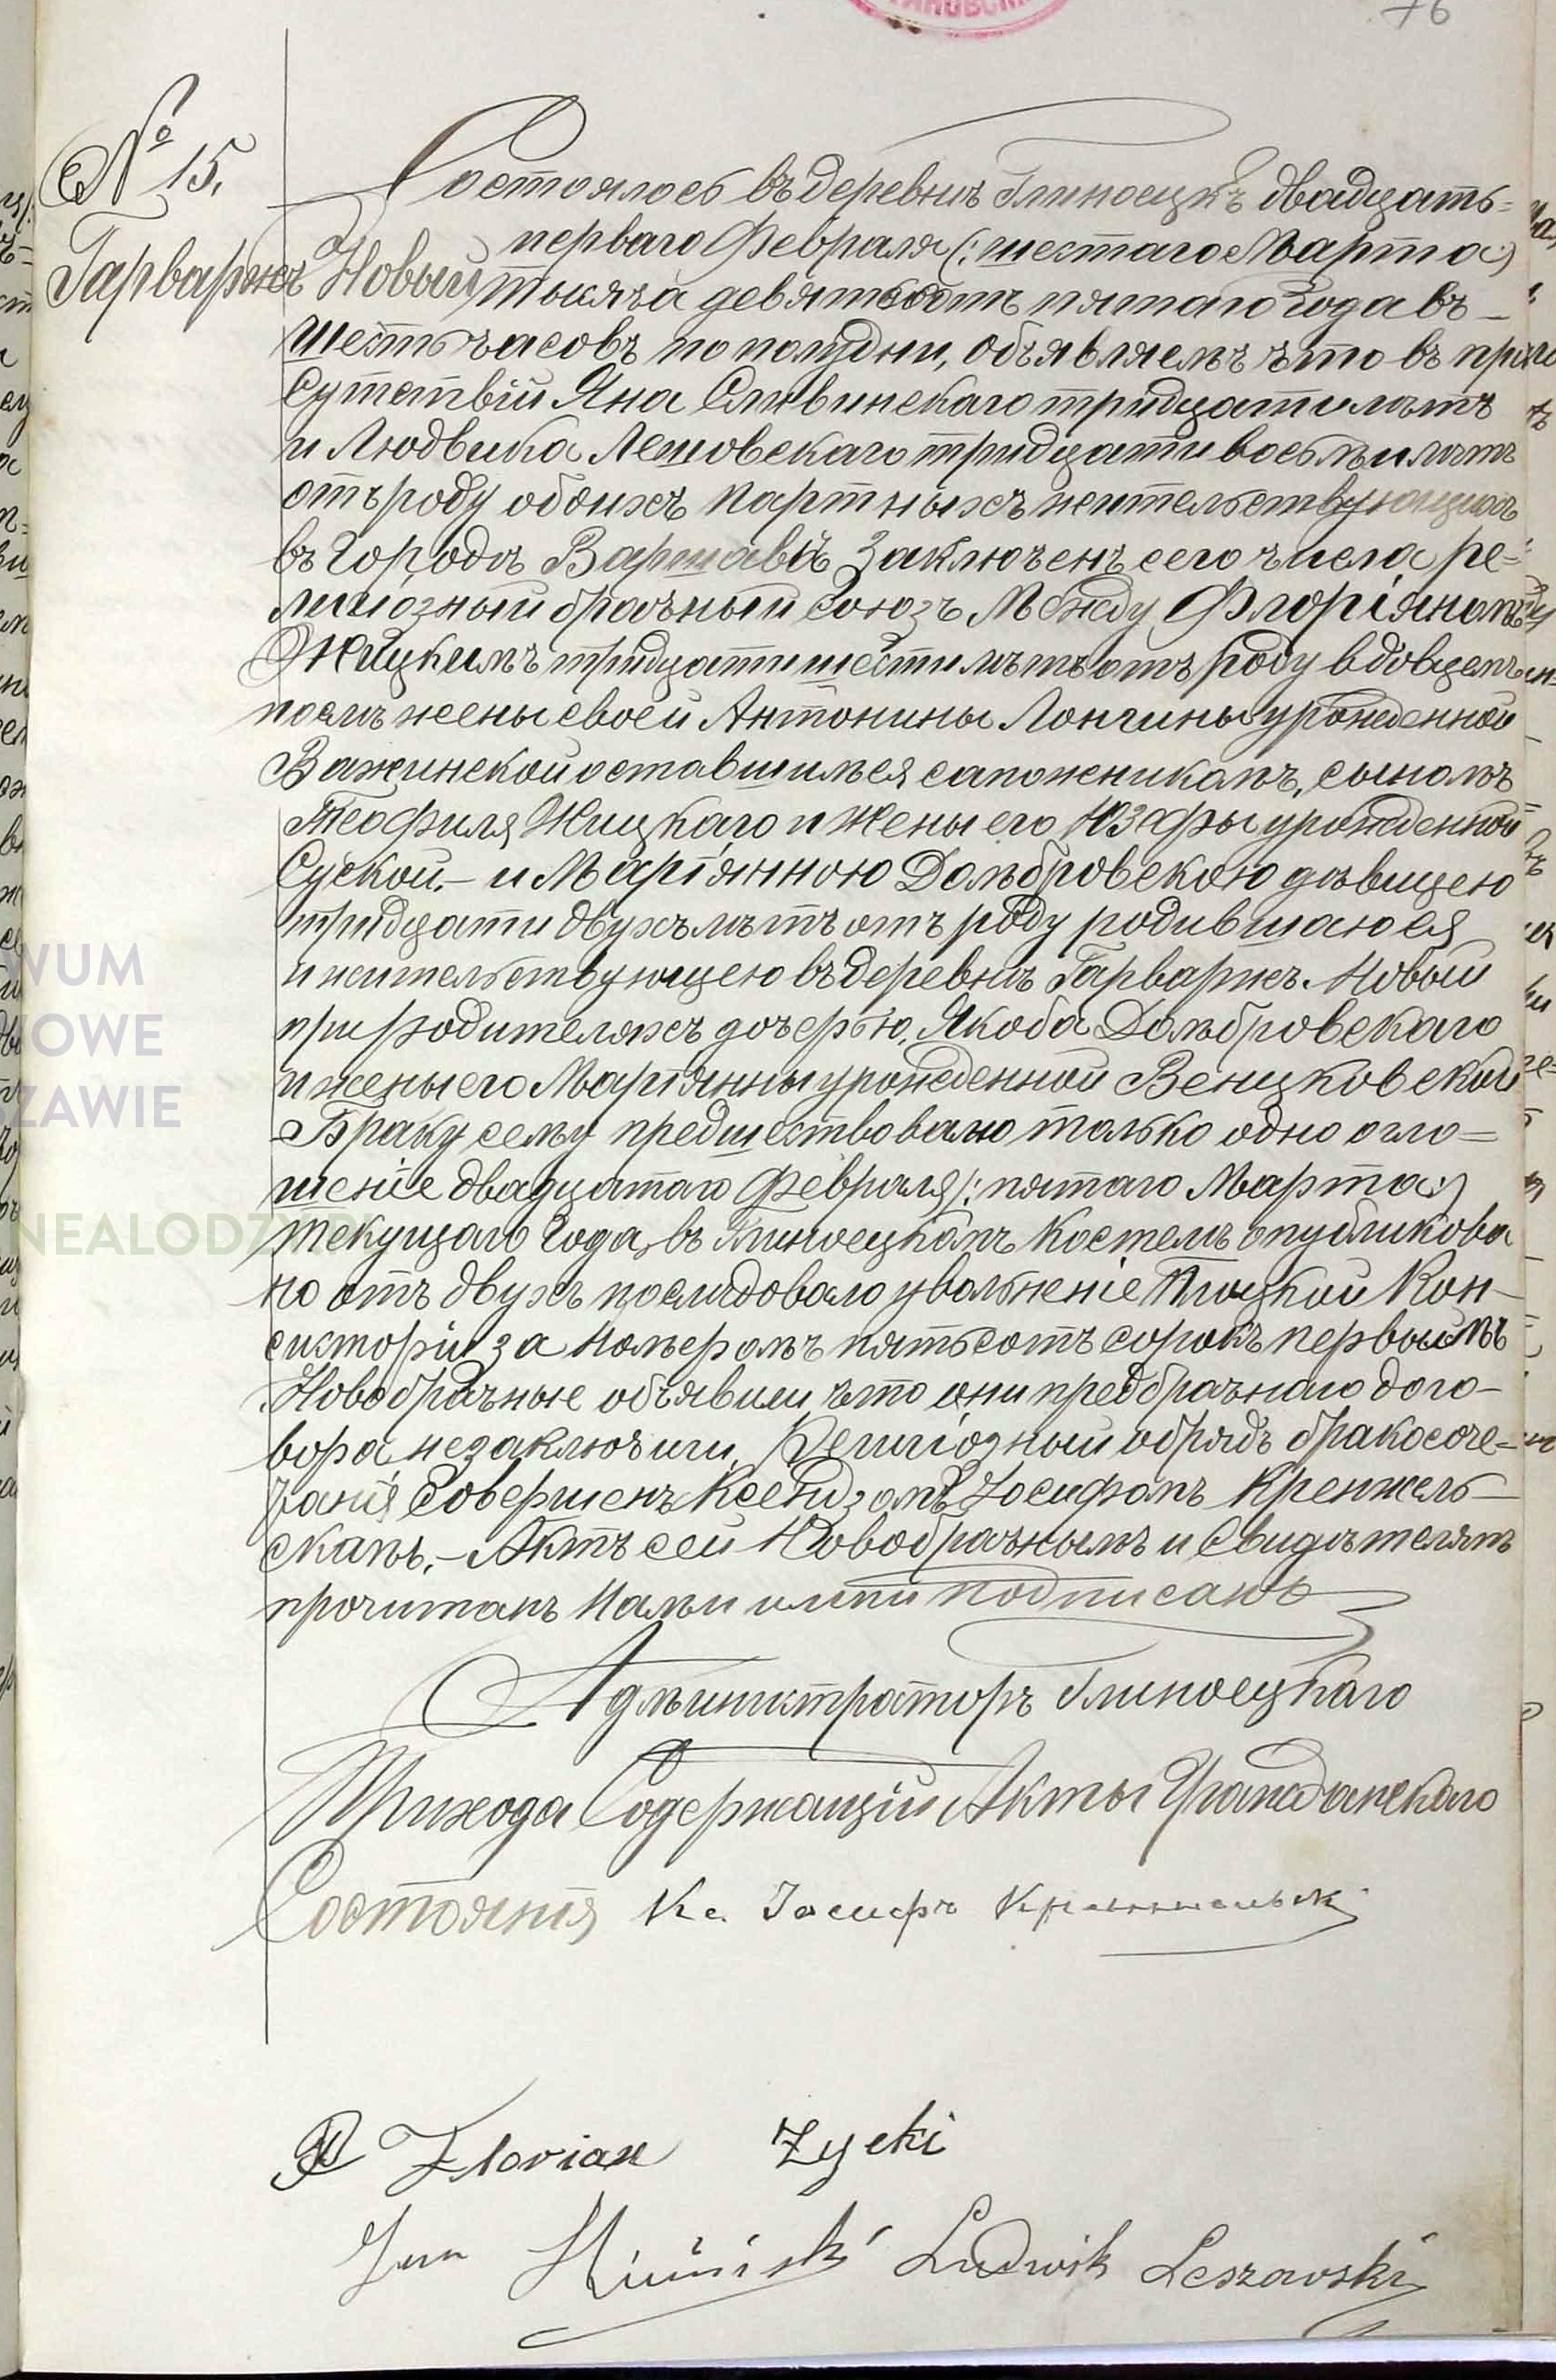 76
№ 15.
Гарварже Новый
Состоялось въ деревнѣ Глиноецкѣ двадцать=
перваго Февраля (: шестаго Марта :)
тысяча девятьсотъ пятаго года въ –
шесть часовъ по полудни, объявляемъ что въ при
сутствіи Яна Сливинскаго тридцати лѣтъ
и Людвика Лешовскаго тридцати восьми лѣтъ
отъ роду обоихъ жительствующихъ
въ городѣ Варшавѣ заключенъ сего числа ре=
лигіозный брачный союзъ между Флоріяномъ
Жицкимъ тридцати шести лѣтъ отъ роду вдовцемъ
послѣ жены своей Антонины Лонгины урожденной
Важинской оставшимся сапожникомъ, сыномъ
Теофиля Жицкаго и жены его Юзефы урожденной
Суской. – и Маріянною Домбровскою дѣвицею
тридцати двухъ лѣтъ отъ роду родившаюся
и жительствующею въ деревнѣ Гарварже. Новой
при родителяхъ дочерью, Якоба Домбровскаго
и жены его Маріянны урожденной Венцковской
Браку сему предшествовало только одно огло=
шеніе двадцатаго Февраля (: пятаго Марта :)
текущаго года, въ Глиноецкомъ костелѣ опубликова
но отъ двухъ послѣдовало увольненіе Плоцкой Кон–
систоріи за номеромъ пятьсотъ сорокъ первымъ
Новобрачные объявили что они предбрачнаго дого–
вора незаключили. Религіозный обрядъ бракосоче=
танія совершенъ Ксендзомъ Іосифомъ Кренжель–
скамъ. – Актъ сей Новобрачнымъ и Свидѣтелямъ
прочитанъ Нами и ими подписанъ
Администраторъ Глиноецкаго
Прихода Содержащій Акты Гражданскаго
Состоянія Кс. Іосифъ Кренжельски
Florian Zycki
Jan Ludwik Leszowski
WUM
OWE
ZAWIE
NEALODZ